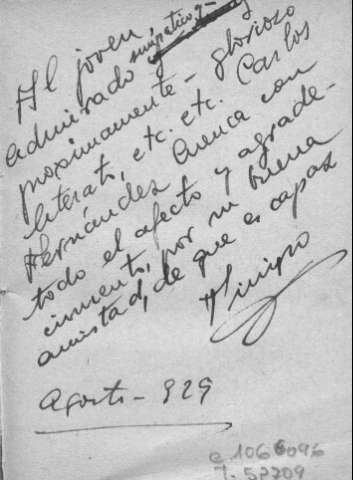 Al joven,
simpático, y
admirado
proximamente - glorioso
literato, etc. etc. Carlos
Hernández Cuenca con
todo el afecto y agrade-
cimiento, por su buena
amistad, de que es capaz
Agosto - 929
c. 1066096
T. 52209